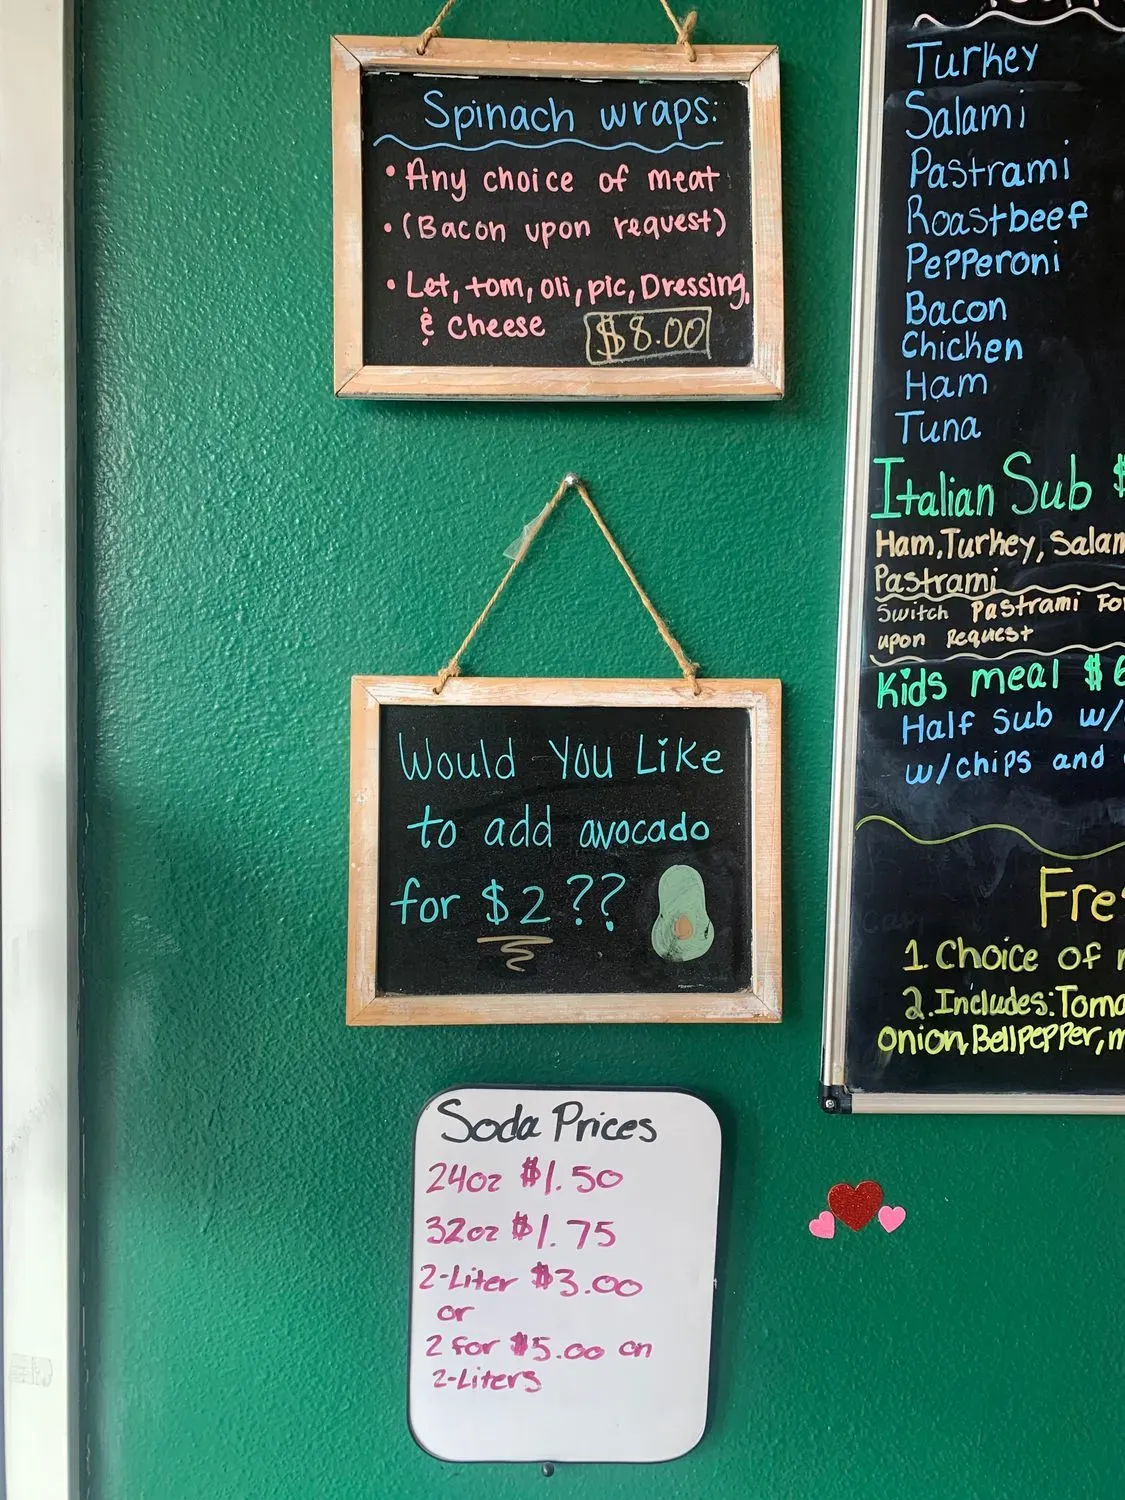 Spinach wraps:
• Any choice of meat
• (Bacon upon request)
• Let, tom, oli, pic, Dressing,
& Cheese
$8.00
Would You Like
to add avocado
for $2??
Soda Prices
24oz $1.50
32oz $1.75
2-Liter $3.00
or
2 for $5.00 on
2-Liters
Turkey
Salami
Pastrami
Roastbeef
Pepperoni
Bacon
Chicken
Ham
Tuna
Italian Sub $
Ham, Turkey, Salam
Pastrami
Switch Pastrami For
upon Request
Kids meal $6
Half Sub w/
w/chips and
Fre
1. Choice of
2. Includes: Toma
Onion, Bellpepper, m